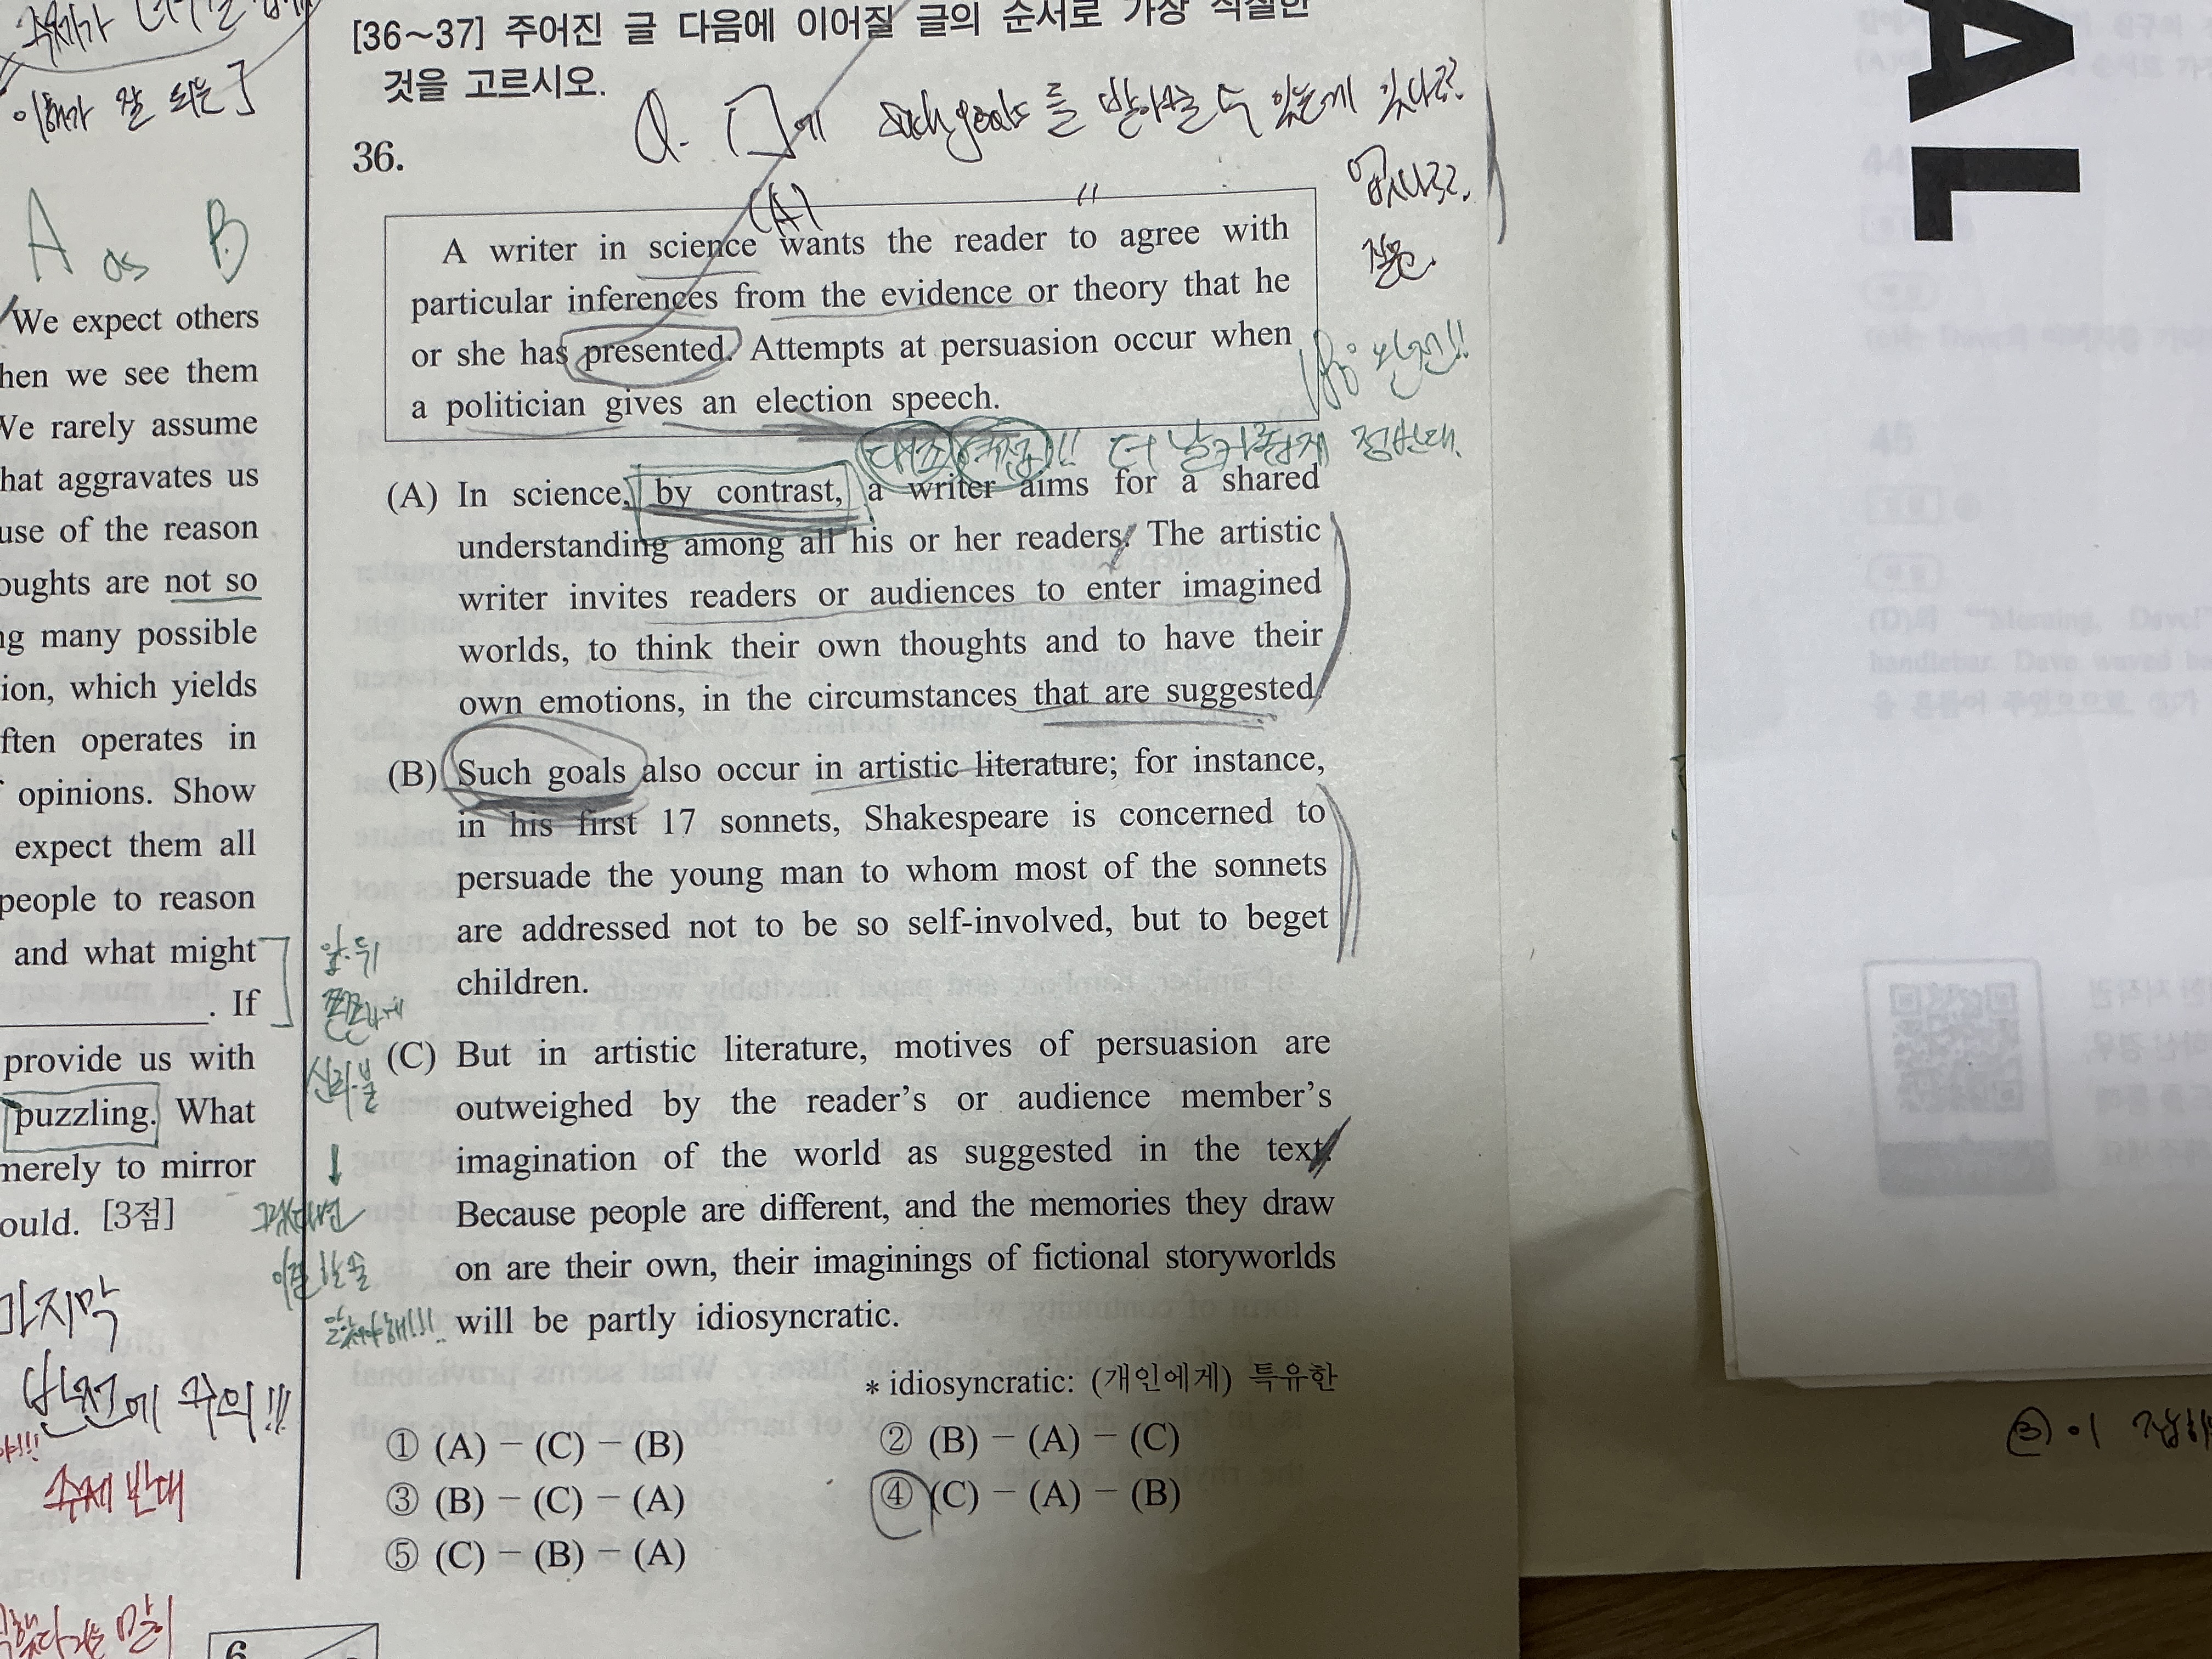 이해가 잘 되는]
A as B
We expect others
hen we see them
We rarely assume
hat aggravates us
use of the reason
oughts are not so
ng many possible
ion, which yields
ften operates in
opinions. Show
expect them all
people to reason
and what might
. If
provide us with
puzzling. What
merely to mirror
ould. [3점]
마지막
반전에 주의!!!
주제 반대
[36~37] 주어진 글 다음에 이어질 글의 순서로 가장 적절한
것을 고르시오.
Q. [ ]에 such goals 를 받아줄 수 있는게 있다고?
없다고?
36.
(A)
A writer in science wants the reader to agree with
particular inferences from the evidence or theory that he
or she has presented. Attempts at persuasion occur when
a politician gives an election speech.
더 날카롭게 정반대.
(A) In science, by contrast, a writer aims for a shared
understanding among all his or her readers. The artistic
writer invites readers or audiences to enter imagined
worlds, to think their own thoughts and to have their
own emotions, in the circumstances that are suggested
(B) Such goals also occur in artistic literature; for instance,
in his first 17 sonnets, Shakespeare is concerned to
persuade the young man to whom most of the sonnets
are addressed not to be so self-involved, but to beget
children.
앞·뒤
(C) But in artistic literature, motives of persuasion are
outweighed by the reader's or audience member's
imagination of the world as suggested in the text.
Because people are different, and the memories they draw
on are their own, their imaginings of fictional storyworlds
will be partly idiosyncratic.
* idiosyncratic: (개인에게) 특유한
① (A) - (C) - (B)
② (B) - (A) - (C)
③ (B) - (C) - (A)
④ (C) - (A) - (B)
⑤ (C) - (B) - (A)
6
AL